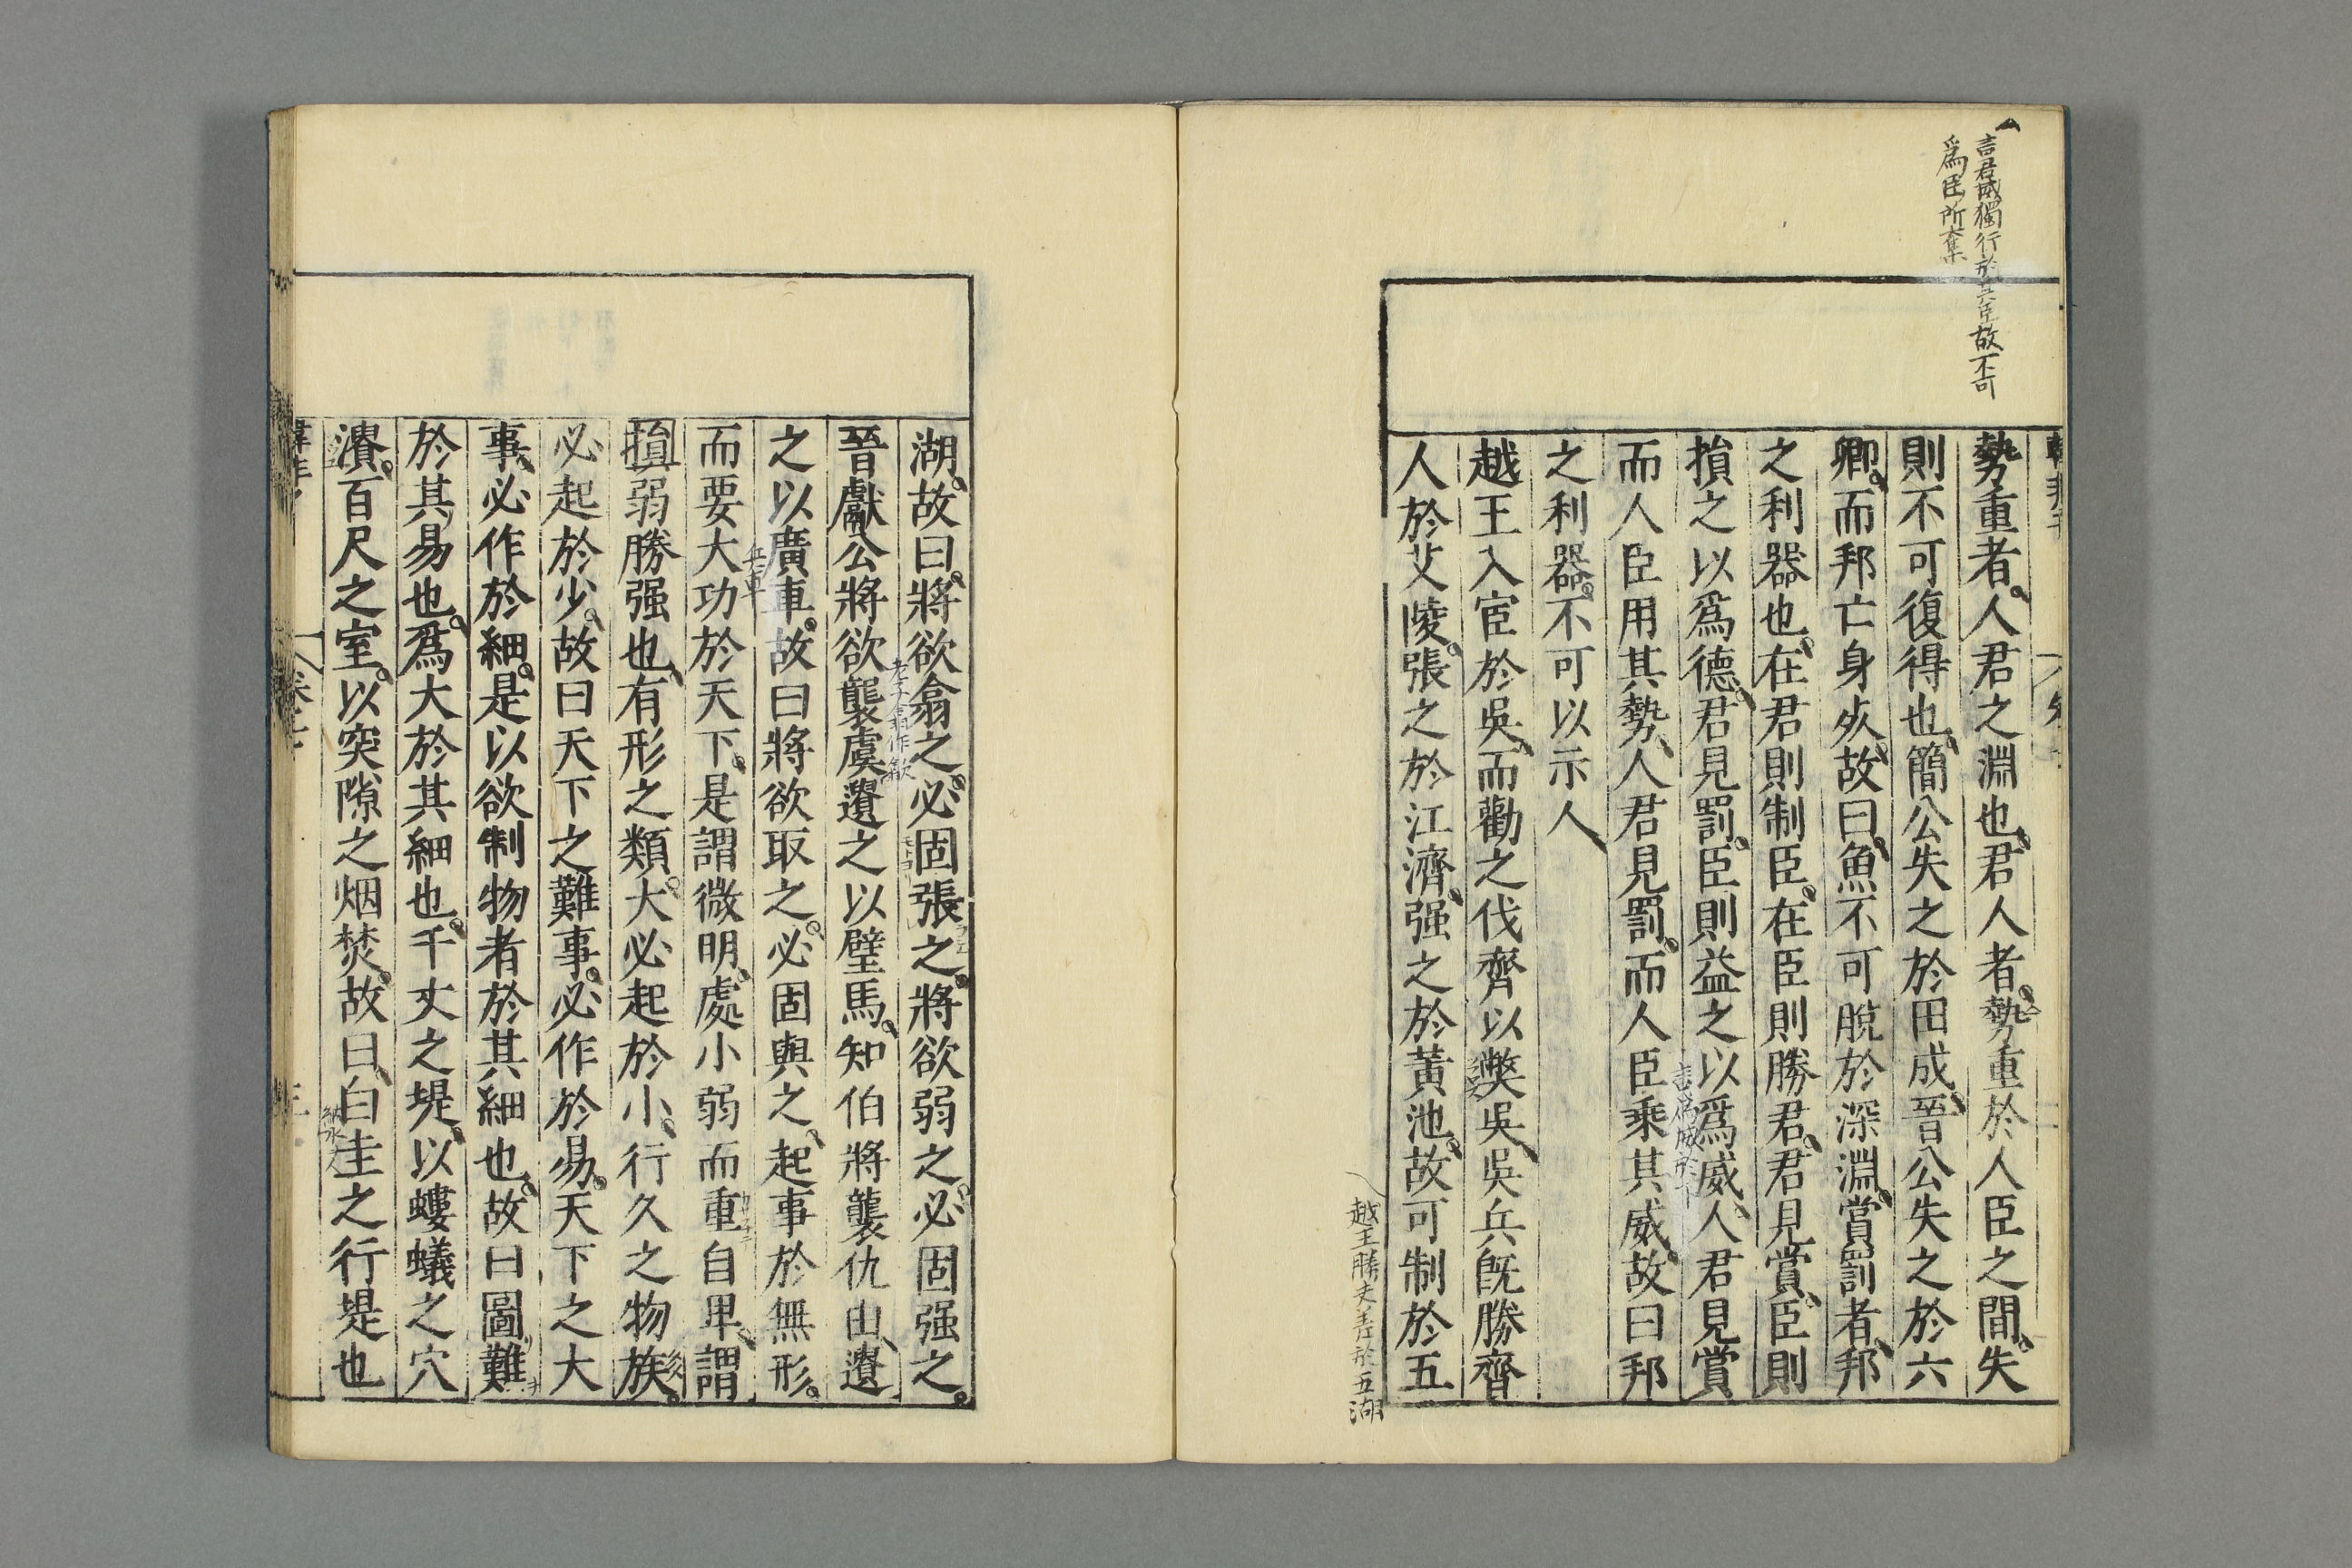 言君威獨行於其臣故不可
爲臣所奪
勢重者人君之淵也君人者勢重於人臣之間失
則不可復得也簡公失之於田成晉公失之於六
卿而邦亡身死故曰魚不可脫於深淵賞罰者邦
之利器也在君則制臣在臣則勝君君見賞臣則
損之以爲德君見罰臣則益之以爲威人君見賞
而人臣用其勢人君見罰而人臣乘其威故曰邦
之利器不可以示人
越王入宦於吳而勸之伐齊以獘吳吳兵旣勝齊
人於艾陵張之於江濟强之於黃池故可制於五
越王勝夫差於五湖
湖故曰將欲翕之必固張之將欲弱之必固强之
老子翕作歙
晉獻公將欲襲虞遺之以璧馬知伯將襲仇由遺
之以廣車故曰將欲取之必固與之起事於無形
兵車
而要大功於天下是謂微明處小弱而重自卑謂
損弱勝强也有形之類大必起於小行久之物族
必起於少故曰天下之難事必作於易天下之大
事必作於細是以欲制物者於其細也故曰圖難
於其易也爲大於其細也千丈之堤以螻蟻之穴
潰百尺之室以突隙之烟焚故曰白圭之行堤也